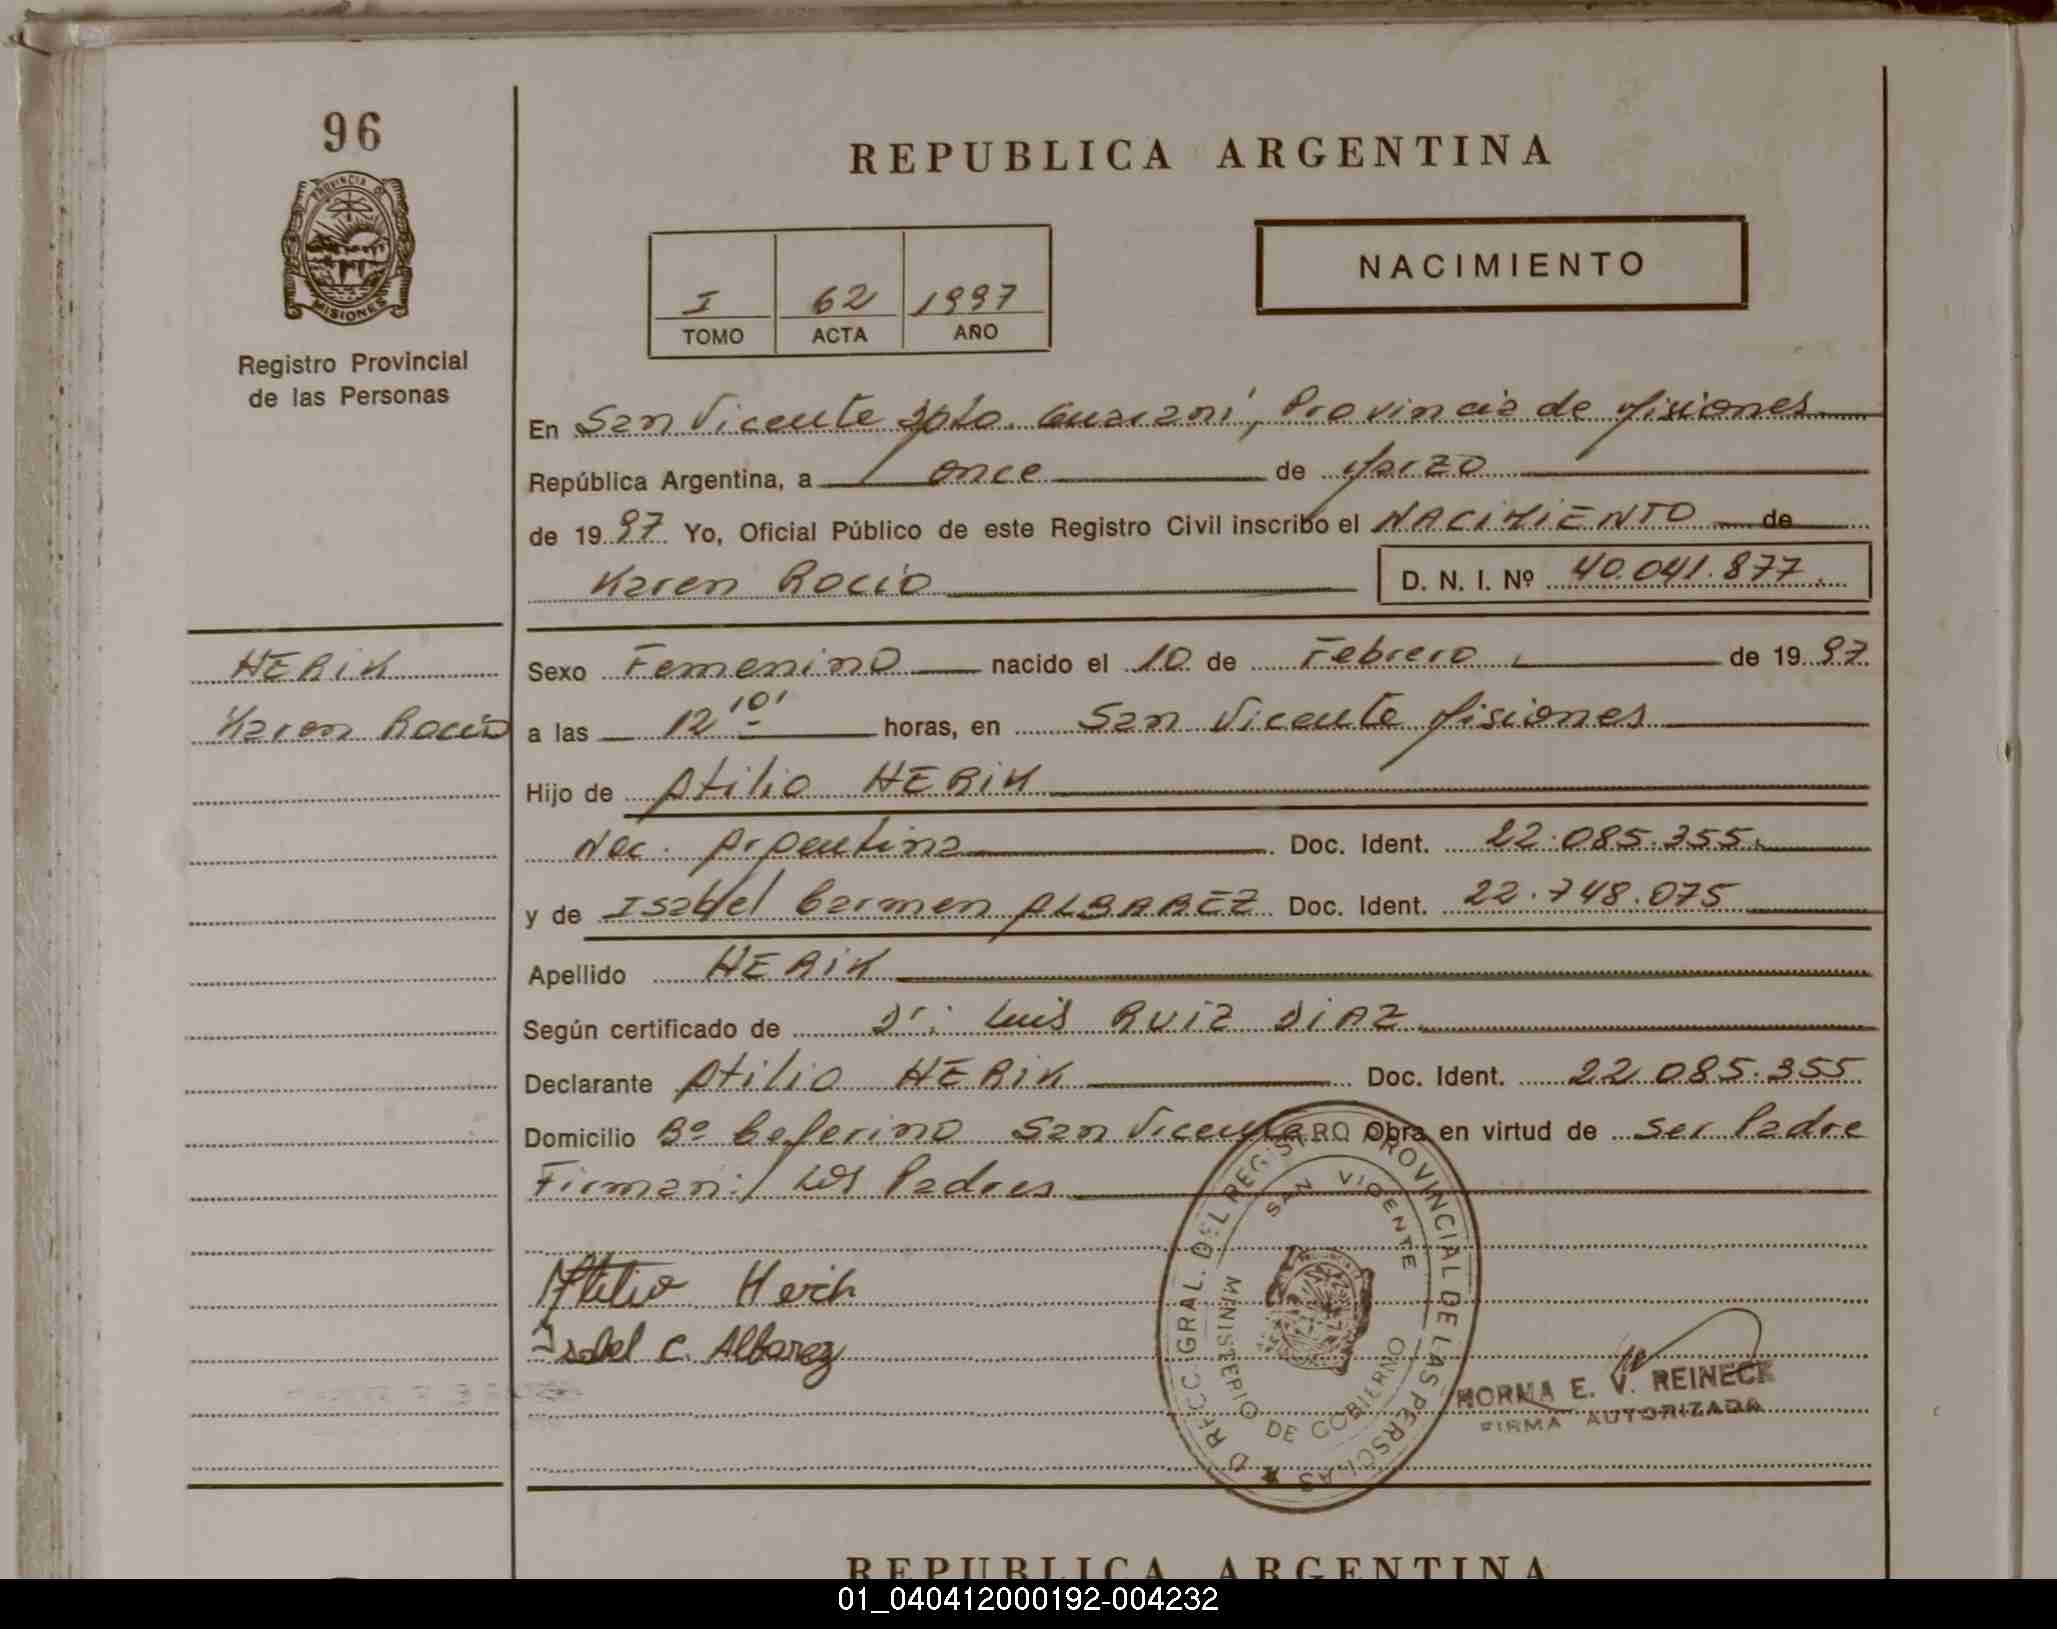 96
PROVINCIA DE
MISIONES
Registro Provincial
de las Personas
REPUBLICA ARGENTINA
I 62 1997
TOMO ACTA AÑO
NACIMIENTO
En San Vicente Dpto. Guaraní, Provincia de Misiones
República Argentina, a once de Marzo
de 1997 Yo, Oficial Público de este Registro Civil inscribo el NACIMIENTO de
Karen Rocio D. N. I. Nº 40.041.877.
HERIK
Karen Rocio
Sexo Femenino nacido el 10 de Febrero de 1997
a las 12 10' horas, en San Vicente Misiones
Hijo de Atilio HERIK
Nac. Argentina Doc. Ident. 22.085.355.
y de Isabel Carmen ALBAREZ Doc. Ident. 22.748.075
Apellido HERIK
Según certificado de Dr: Luis RUIZ DIAZ
Declarante Atilio HERIK Doc. Ident. 22.085.355
Domicilio Bº Ceferino San Vicente Obra en virtud de ser Padre
Firman: Los Padres
Atilio Herik
Isabel C. Albarez
GRAL. DEL REGISTRO PROVINCIAL DE LAS PERSONAS
SAN VICENTE
MINISTERIO DE GOBIERNO
NORMA E. V. REINECK
FIRMA AUTORIZADA
REPUBLICA ARGENTINA
01_040412000192-004232